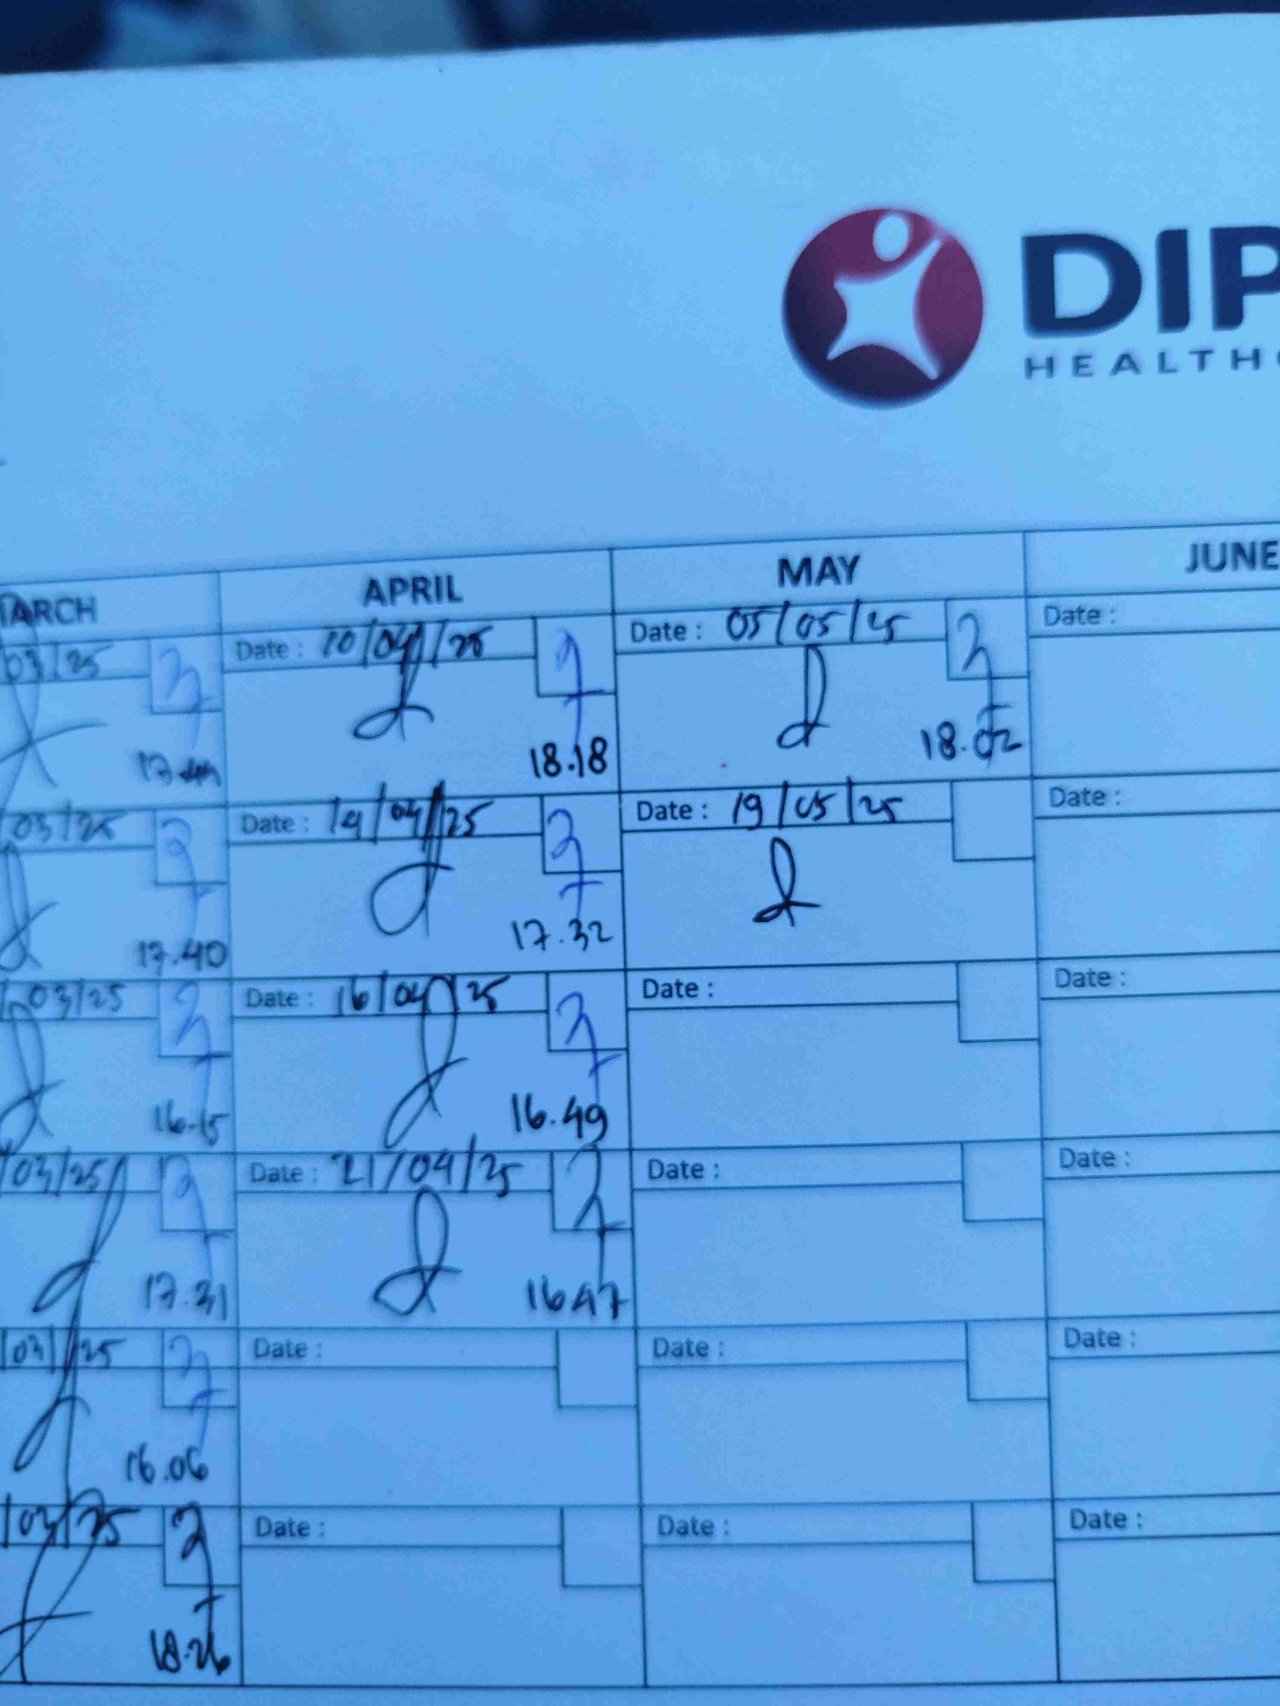 DIP
HEALTHC
MARCH APRIL MAY JUNE
03/25 Date : 10/04/25 Date : 05/05/25 Date :
17.44 18.18 18.02
03/25 Date : 14/04/25 Date : 19/05/25 Date :
17.40 17.32
03/25 Date : 16/04/25 Date : Date :
16.15 16.49
/03/25 Date : 21/04/25 Date : Date :
17.31 16.47
/03/25 Date : Date : Date :
16.06
/03/25 Date : Date : Date :
18.26